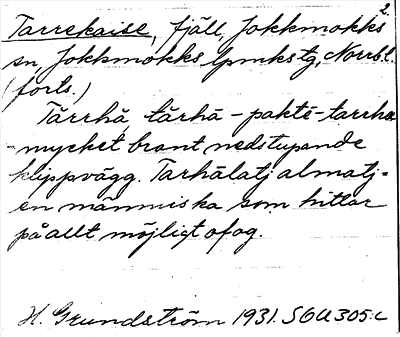 2.
Tarrekaise, fjäll, Jokkmokks
sn, Jokkmokks lpmkstg, Norrb.l.
(forts.)
Tärrhå, tårhå - paktē - tarrha
- mycket brant nedstupande
klippvägg. Tarhålatj almatj =
en människa som hittar
på allt möjligt ofog.
H. Grundström 1931. SOU 305:c